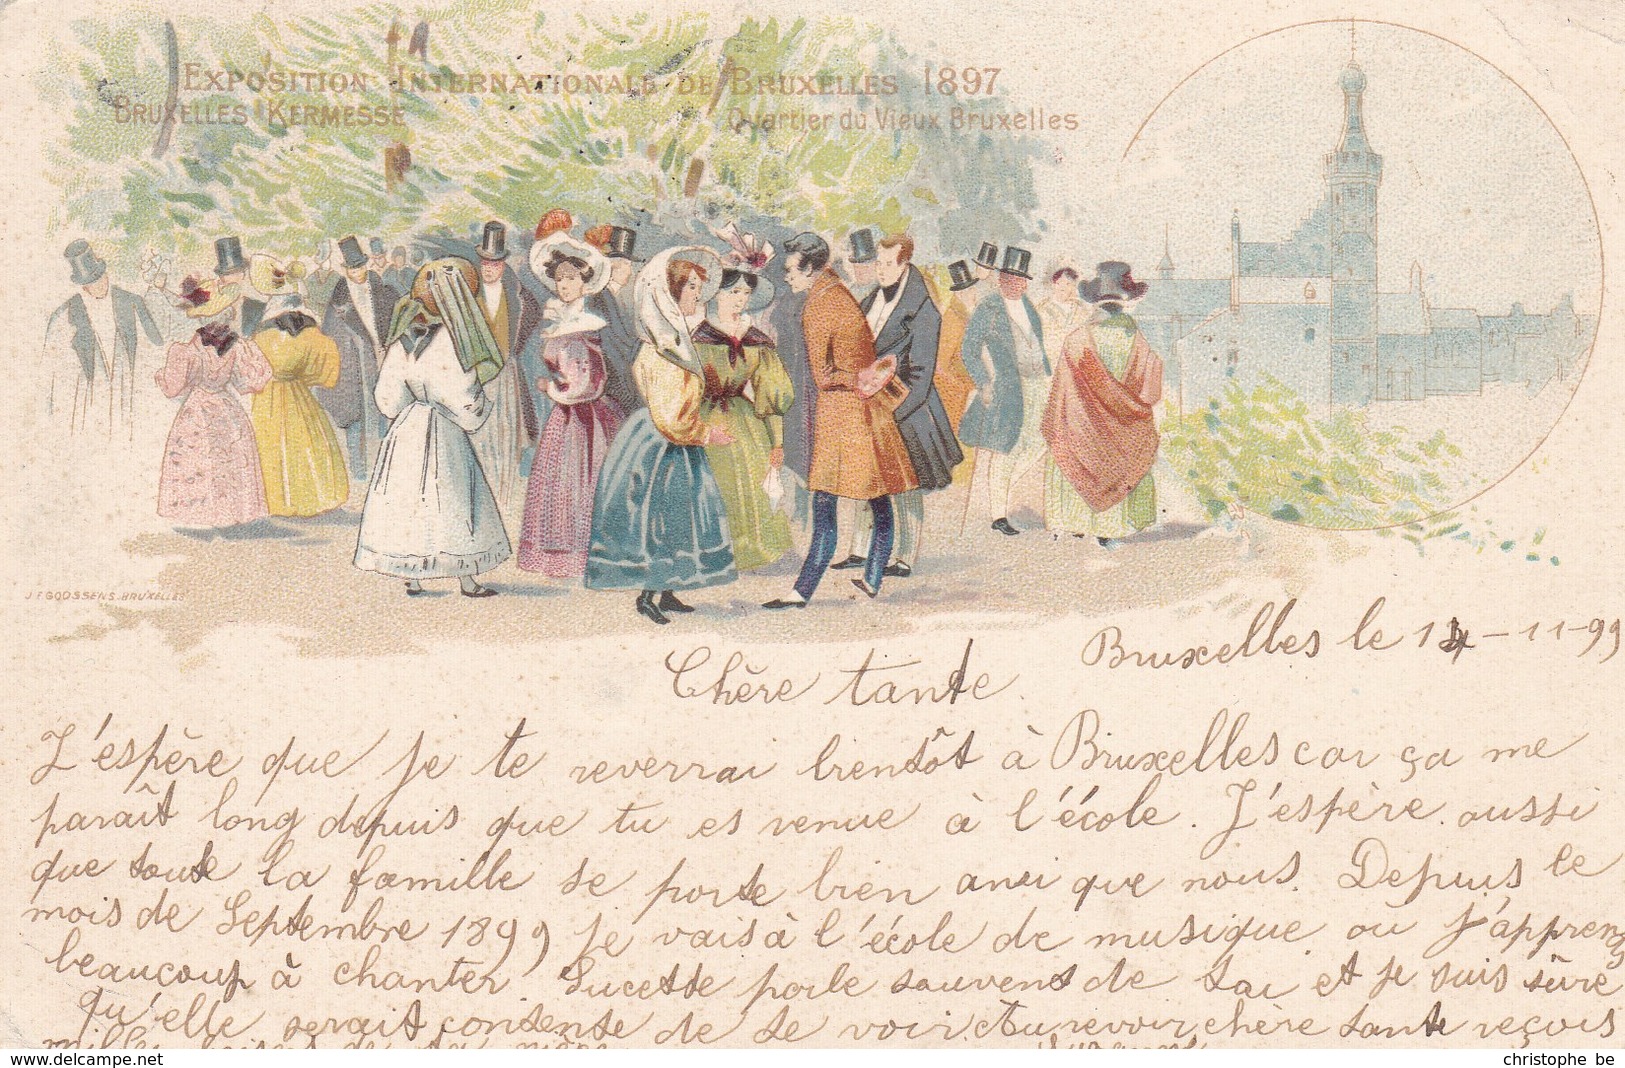 EXPOSITION INTERNATIONALE DE BRUXELLES 1897
BRUXELLES KERMESSE
Quartier du Vieux Bruxelles
J. F. GOOSSENS. BRUXELLES
Bruxelles le 14-11-99
Chère tante
J'espère que je te reverrai bientôt à Bruxelles car ça me
paraît long depuis que tu es venue à l'école. J'espère aussi
que toute la famille se porte bien que nous. Depuis le
mois de Septembre 1899 je vais à l'école de musique ou j'apprends
beaucoup à chanter. Lucette parle souvent de toi et je suis sûre
qu'elle serait contente de te voir. Au revoir chère tante reçois
mille baisers de ta nièce
Suzanne
christophe be